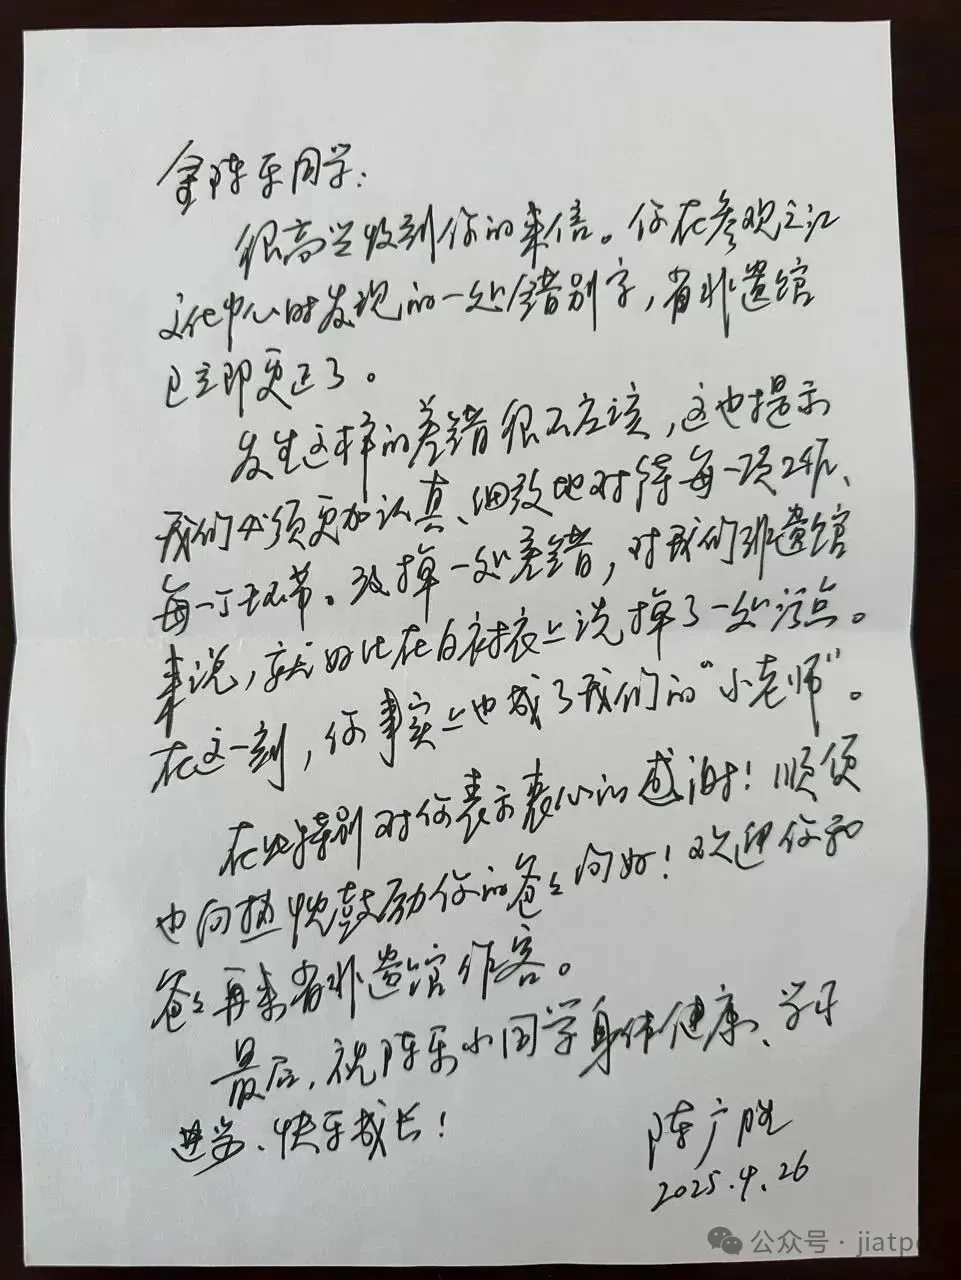 金陈乐同学:
很高兴收到你的来信。你在参观之江
文化中心时发现的一处错别字，省非遗馆
已立即更正了。
发生这样的差错很不应该，这也提示
我们必须更加认真、细致地对待每一项工作、
每一个环节。改掉一处差错，对我们非遗馆
来说，就好比在白衬衣上洗掉了一处污点。
在这一刻，你事实上也成了我们的“小老师”。
在此特别对你表示衷心的感谢！顺便
也向热忱鼓励你的爸爸问好！欢迎你和
爸爸再来省非遗馆作客。
最后，祝陈乐小同学身体健康、学习
进步、快乐成长！
陈广胜
2025.4.26
公众号·jiatpd